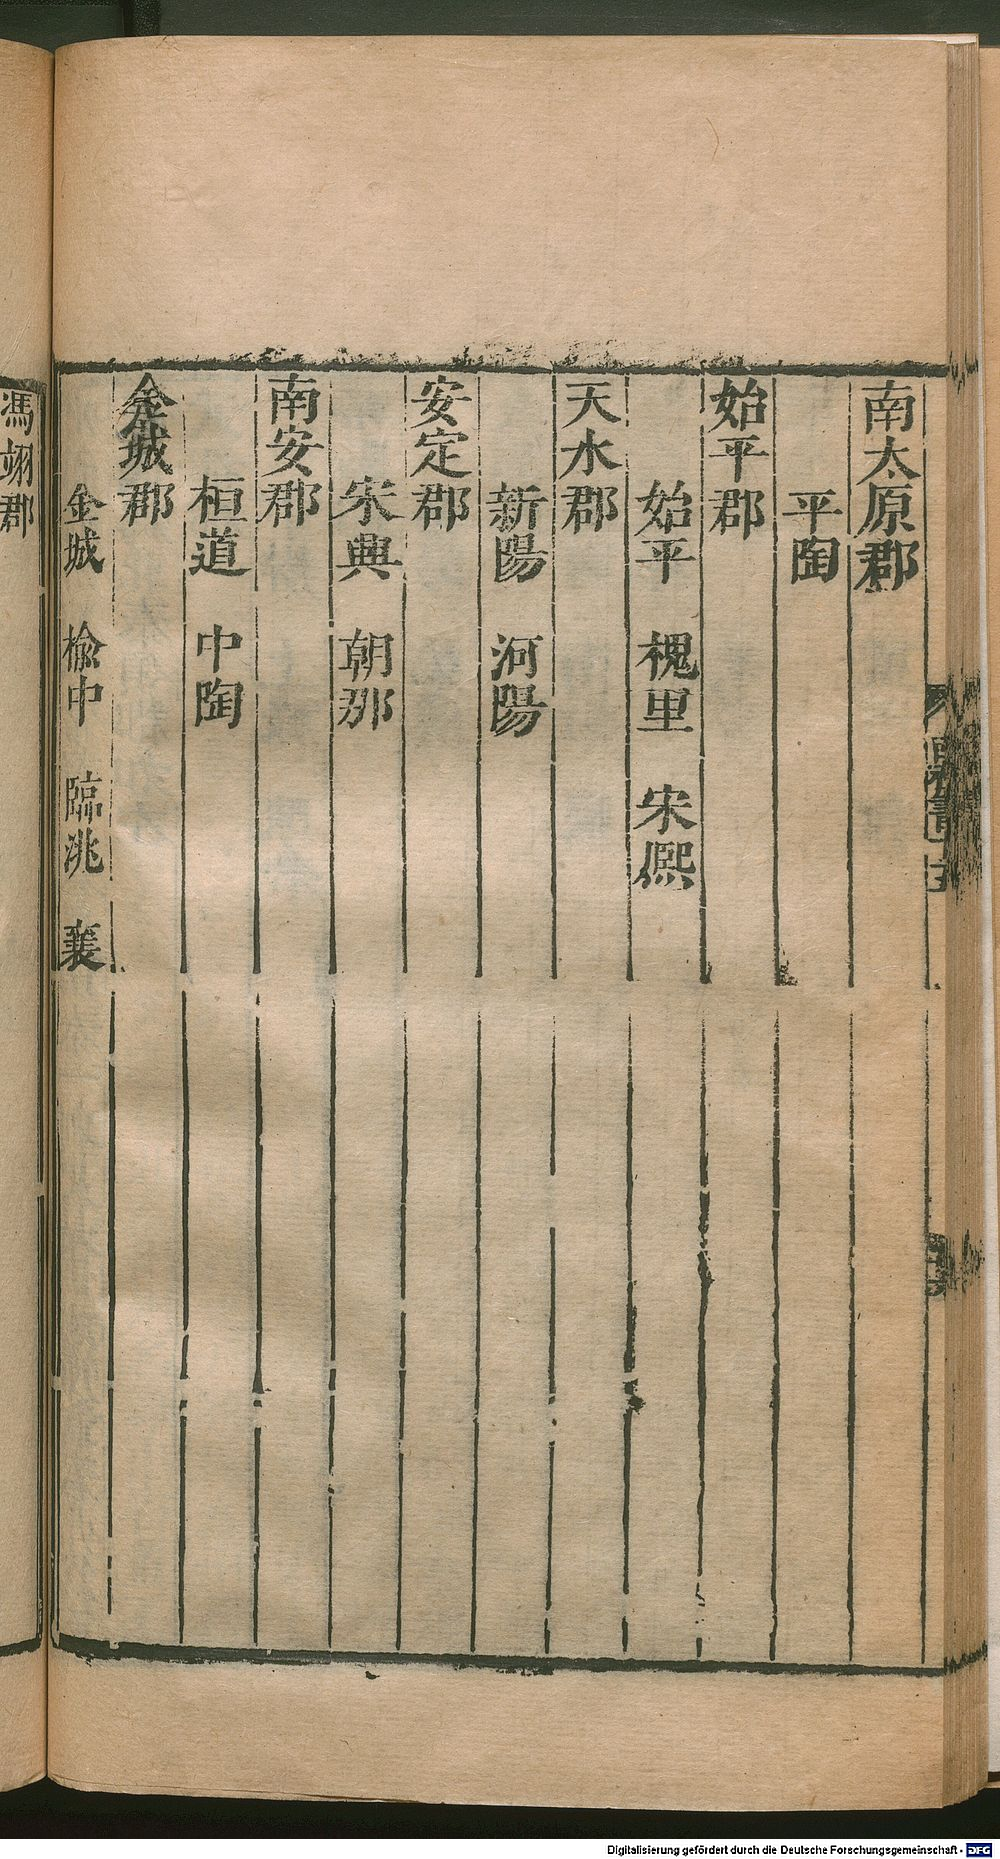 南太原郡
平陶
始平郡
始平　槐里　宋熙
天水郡
新陽　河陽
安定郡
宋興　朝那
南安郡
桓道　中陶
金城郡
金城　榆中　臨洮　襄
馮翊郡
Digitalisierung gefördert durch die Deutsche Forschungsgemeinschaft - DFG